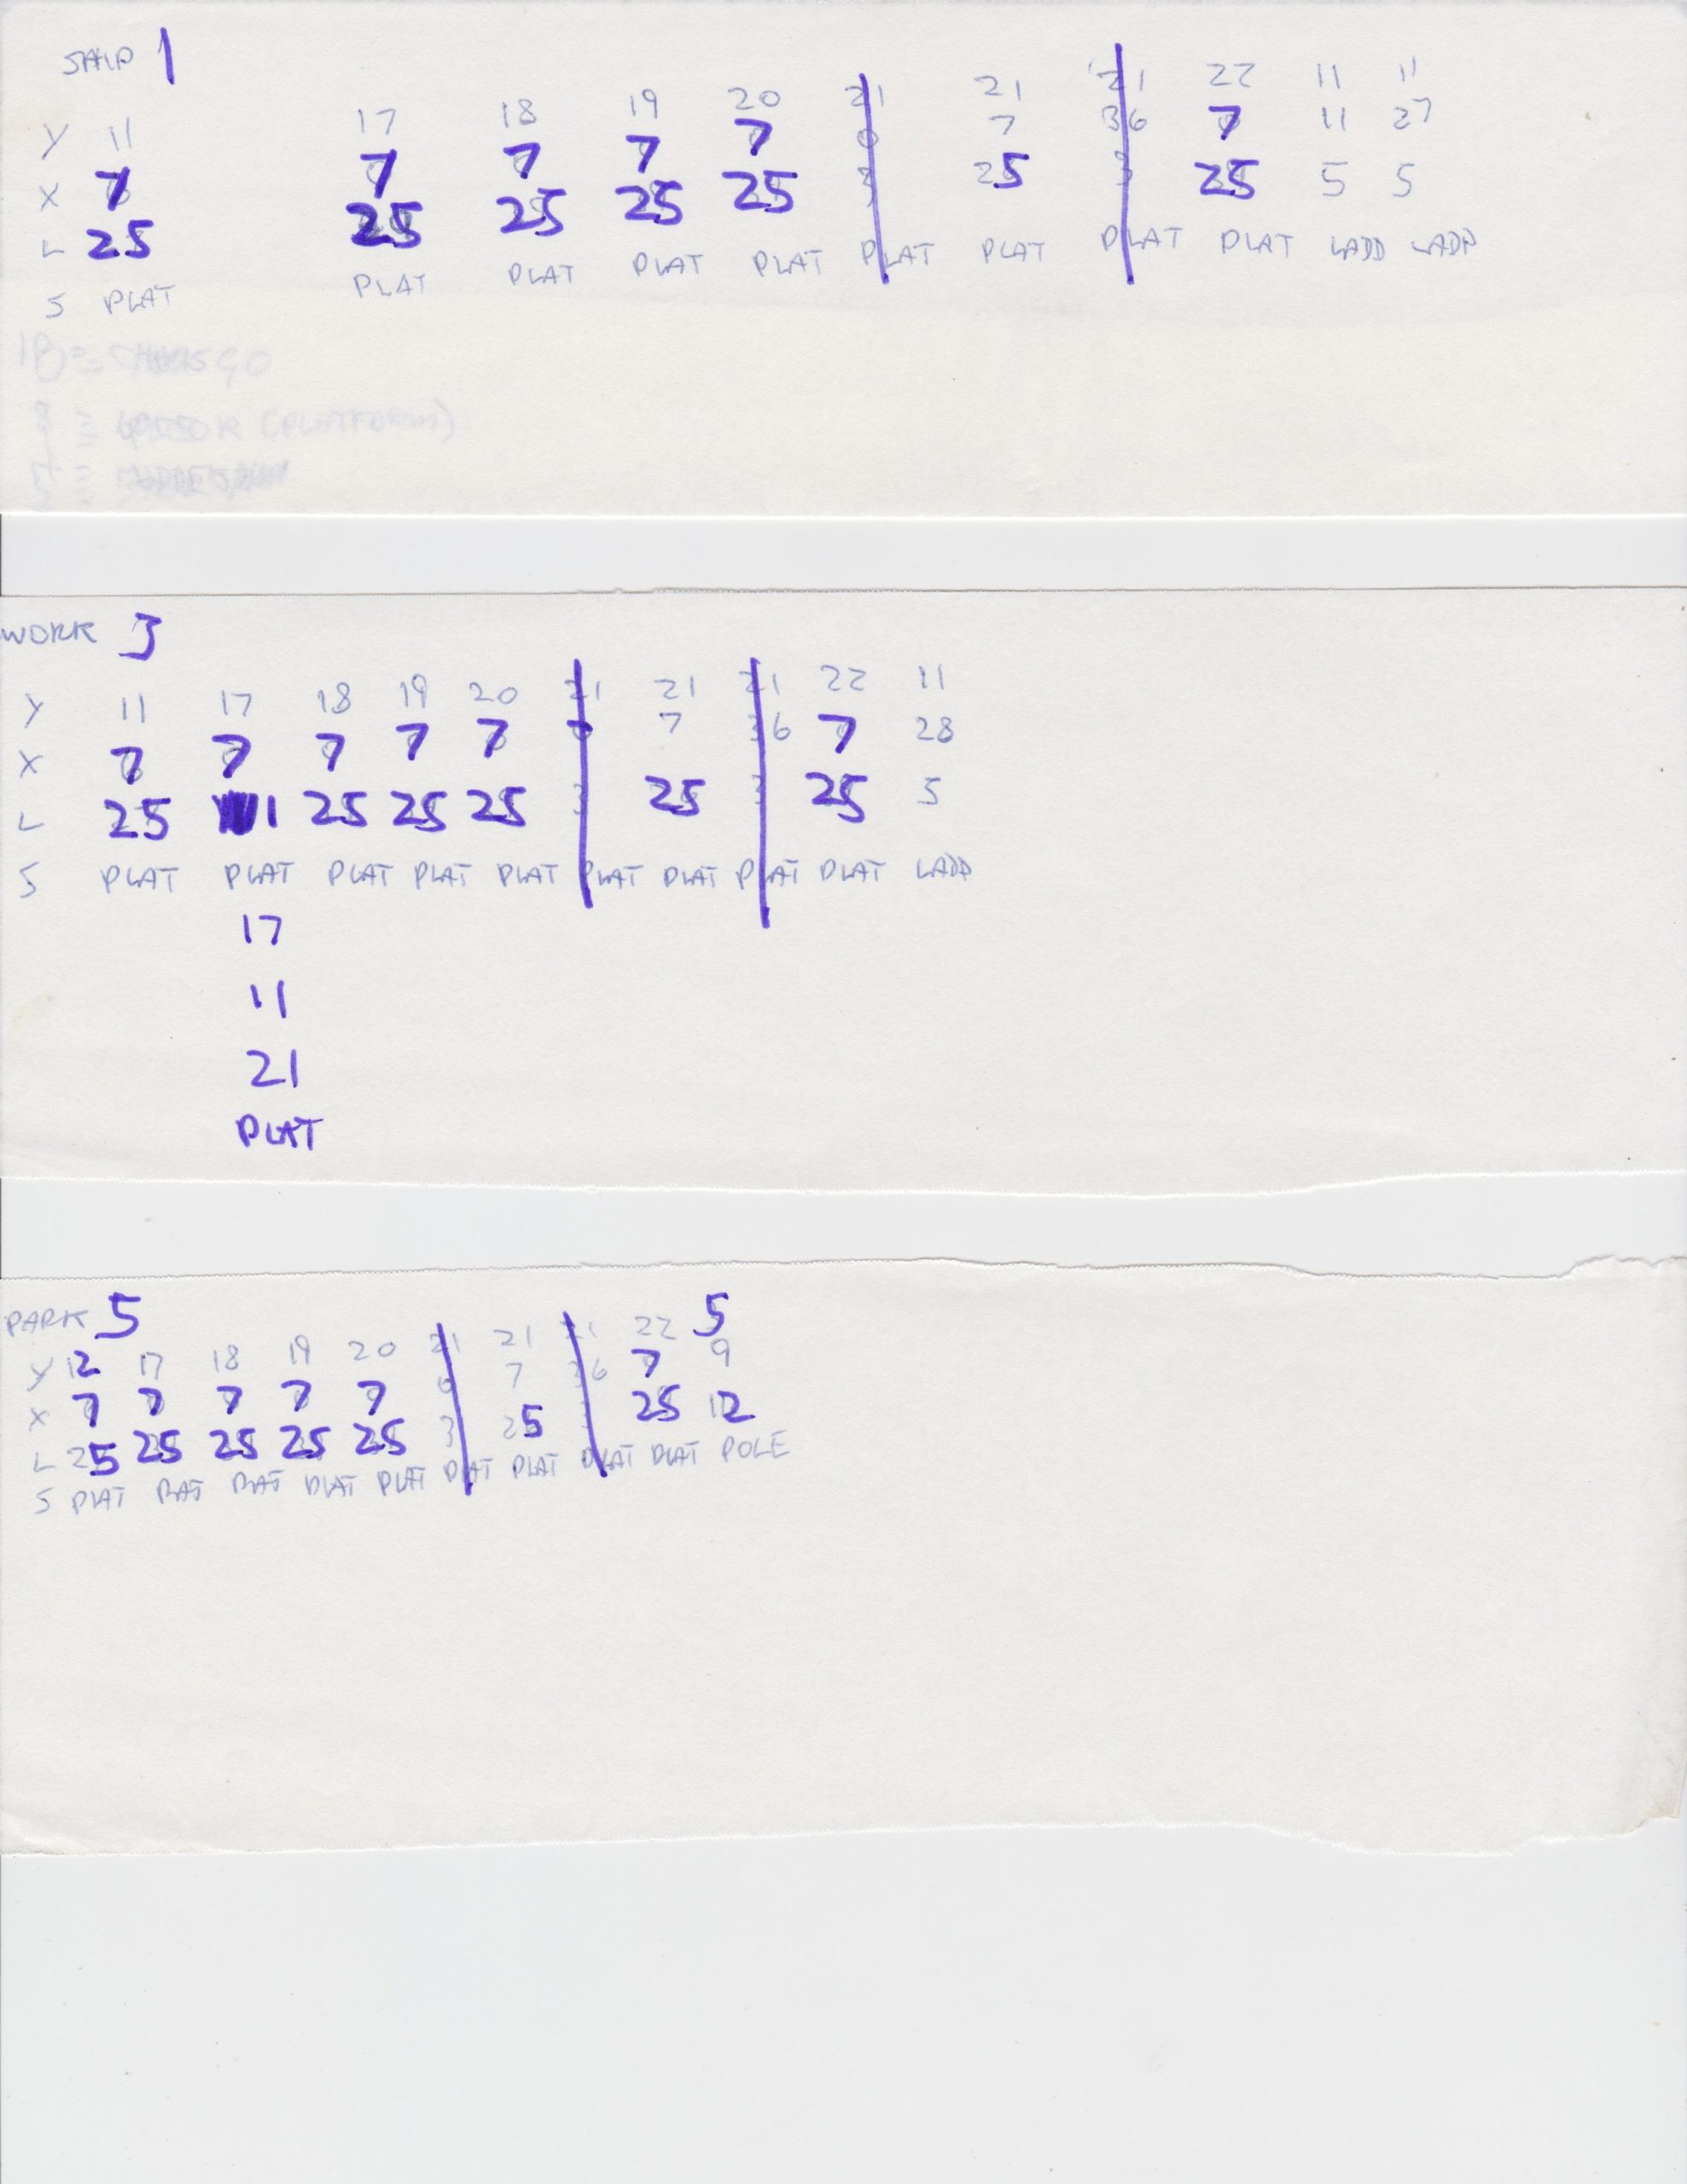 SHIP 1
Y 11 17 18 19 20 21 21 21 22 11 11
X 7 7 7 7 7 0 7 36 7 11 27
L 25 25 25 25 25 3 25 3 25 5 5
S PLAT PLAT PLAT PLAT PLAT PLAT PLAT PLAT PLAT LADD LADD
(PLATFORM)
WORK 3
Y 11 17 18 19 20 21 21 21 22 11
X 7 7 7 7 7 0 7 36 7 28
L 25 1 25 25 25 3 25 3 25 5
S PLAT PLAT PLAT PLAT PLAT PLAT PLAT PLAT PLAT LADD
17
11
21
PLAT
PARK 5
Y 12 17 18 19 20 21 21 21 22 5
X 7 7 7 7 7 0 7 36 7 9
L 25 25 25 25 25 3 25 3 25 12
S PLAT PLAT PLAT PLAT PLAT PLAT PLAT PLAT PLAT POLE